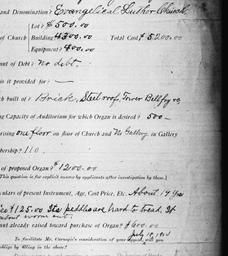 and Denomination? Evangelical Luther Church
Lot $500.00
of Church Building 4300.00 Total Cost $5200.00
Equipment? 400.00
unt of Debt? No debt.
is it provided for—
ch built of? Brick, Steel roof, Tower Belfry
ng Capacity of Auditorium for which Organ is desired? 500—
rising one floor on floor of Church and No Gallery in Gallery
mbership? 110
of proposed Organ? $1200.00
(This question for explicit answer by applicants after investigation by them.)
culars of present Instrument, Age, Cost Price, Etc. About 14 yrs
$125.00 The pedals are hard to tread. It
about worn out.
unt already raised toward purchase of Organ? $600.00
To facilitate Mr. Carnegie's consideration of your appeal, will you
oblige by filling in the above? July 10, 191